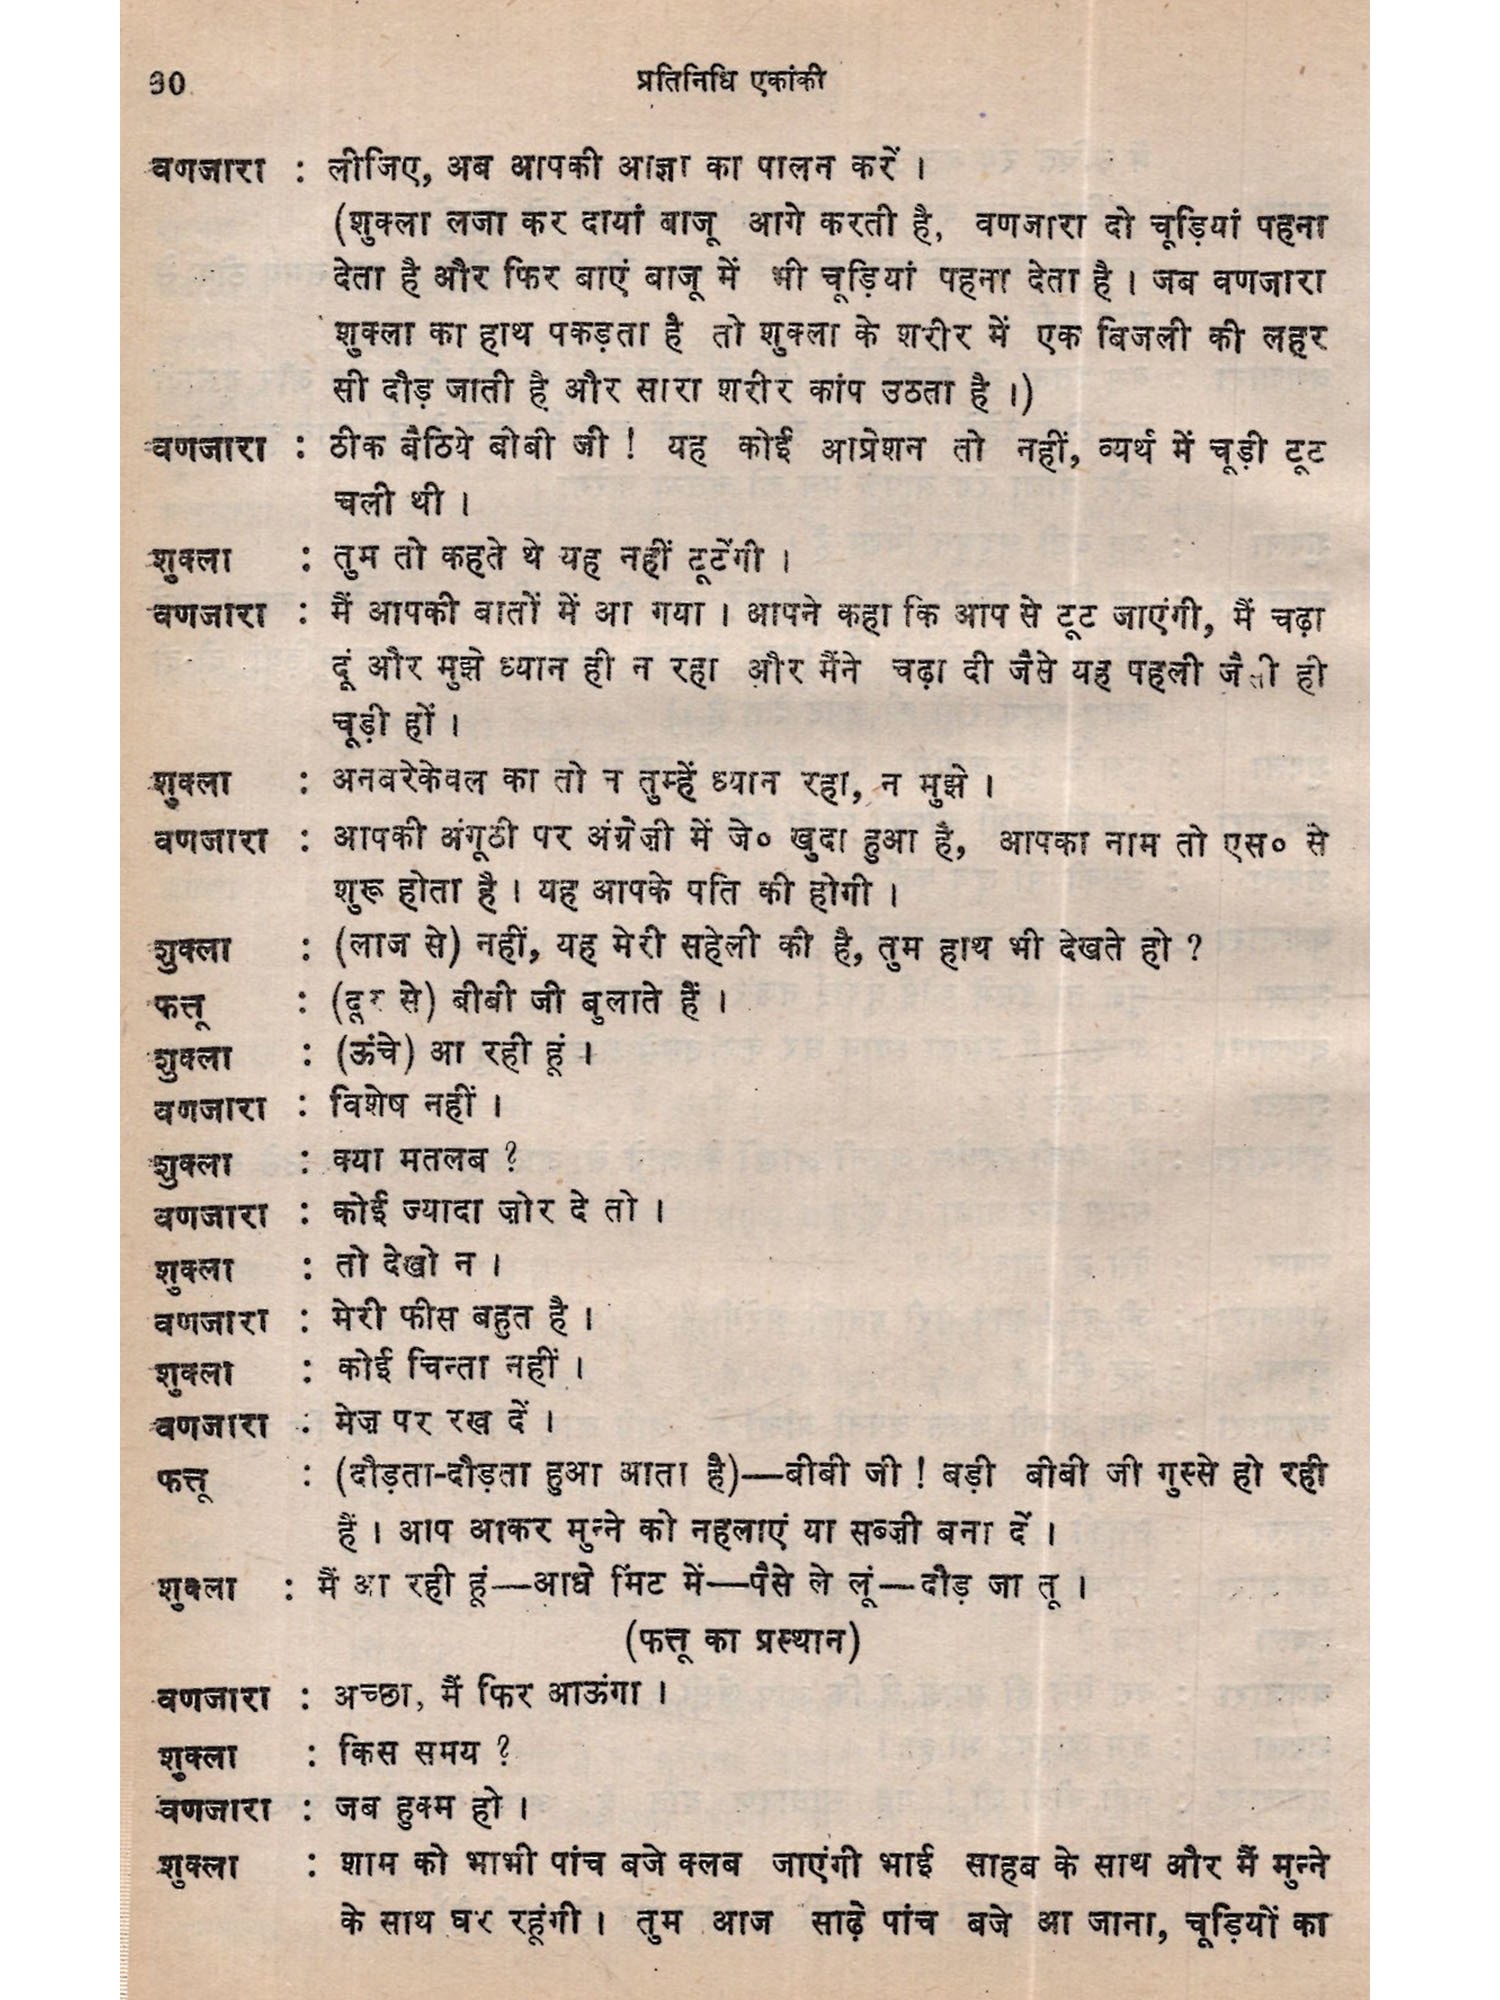 90 प्रतिनिधि एकांकी
वणजारा : लीजिए, अब आपकी आज्ञा का पालन करें ।
(शुक्ला लजा कर दायां बाजू आगे करती है, वणजारा दो चूड़ियां पहना
देता है और फिर बाएं बाजू में भी चूड़ियां पहना देता है । जब वणजारा
शुक्ला का हाथ पकड़ता है तो शुक्ला के शरीर में एक बिजली की लहर
सी दौड़ जाती है और सारा शरीर कांप उठता है ।)
वणजारा : ठीक बैठिये बीबी जी ! यह कोई आप्रेशन तो नहीं, व्यर्थ में चूड़ी टूट
चली थी ।
शुक्ला : तुम तो कहते थे यह नहीं टूटेंगी ।
वणजारा : मैं आपकी बातों में आ गया । आपने कहा कि आप से टूट जाएंगी, मैं चढ़ा
दूं और मुझे ध्यान ही न रहा और मैंने चढ़ा दी जैसे यह पहली जैसी ही
चूड़ी हों ।
शुक्ला : अनबरेकेवल का तो न तुम्हें ध्यान रहा, न मुझे ।
वणजारा : आपकी अंगूठी पर अंग्रेज़ी में जे० खुदा हुआ है, आपका नाम तो एस० से
शुरू होता है । यह आपके पति की होगी ।
शुक्ला : (लाज से) नहीं, यह मेरी सहेली की है, तुम हाथ भी देखते हो ?
फत्तू : (दूर से) बीबी जी बुलाते हैं ।
शुक्ला : (ऊंचे) आ रही हूं ।
वणजारा : विशेष नहीं ।
शुक्ला : क्या मतलब ?
वणजारा : कोई ज्यादा ज़ोर दे तो ।
शुक्ला : तो देखो न ।
वणजारा : मेरी फीस बहुत है ।
शुक्ला : कोई चिन्ता नहीं ।
वणजारा : मेज़ पर रख दें ।
फत्तू : (दौड़ता-दौड़ता हुआ आता है)—बीबी जी ! बड़ी बीबी जी गुस्से हो रही
हैं । आप आकर मुन्ने को नहलाएं या सब्ज़ी बना दें ।
शुक्ला : मैं आ रही हूं—आधे मिंट में—पैसे ले लूं—दौड़ जा तू ।
(फत्तू का प्रस्थान)
वणजारा : अच्छा, मैं फिर आऊंगा ।
शुक्ला : किस समय ?
वणजारा : जब हुक्म हो ।
शुक्ला : शाम को भाभी पांच बजे क्लब जाएंगी भाई साहब के साथ और मैं मुन्ने
के साथ घर रहूंगी । तुम आज साढ़े पांच बजे आ जाना, चूड़ियों का